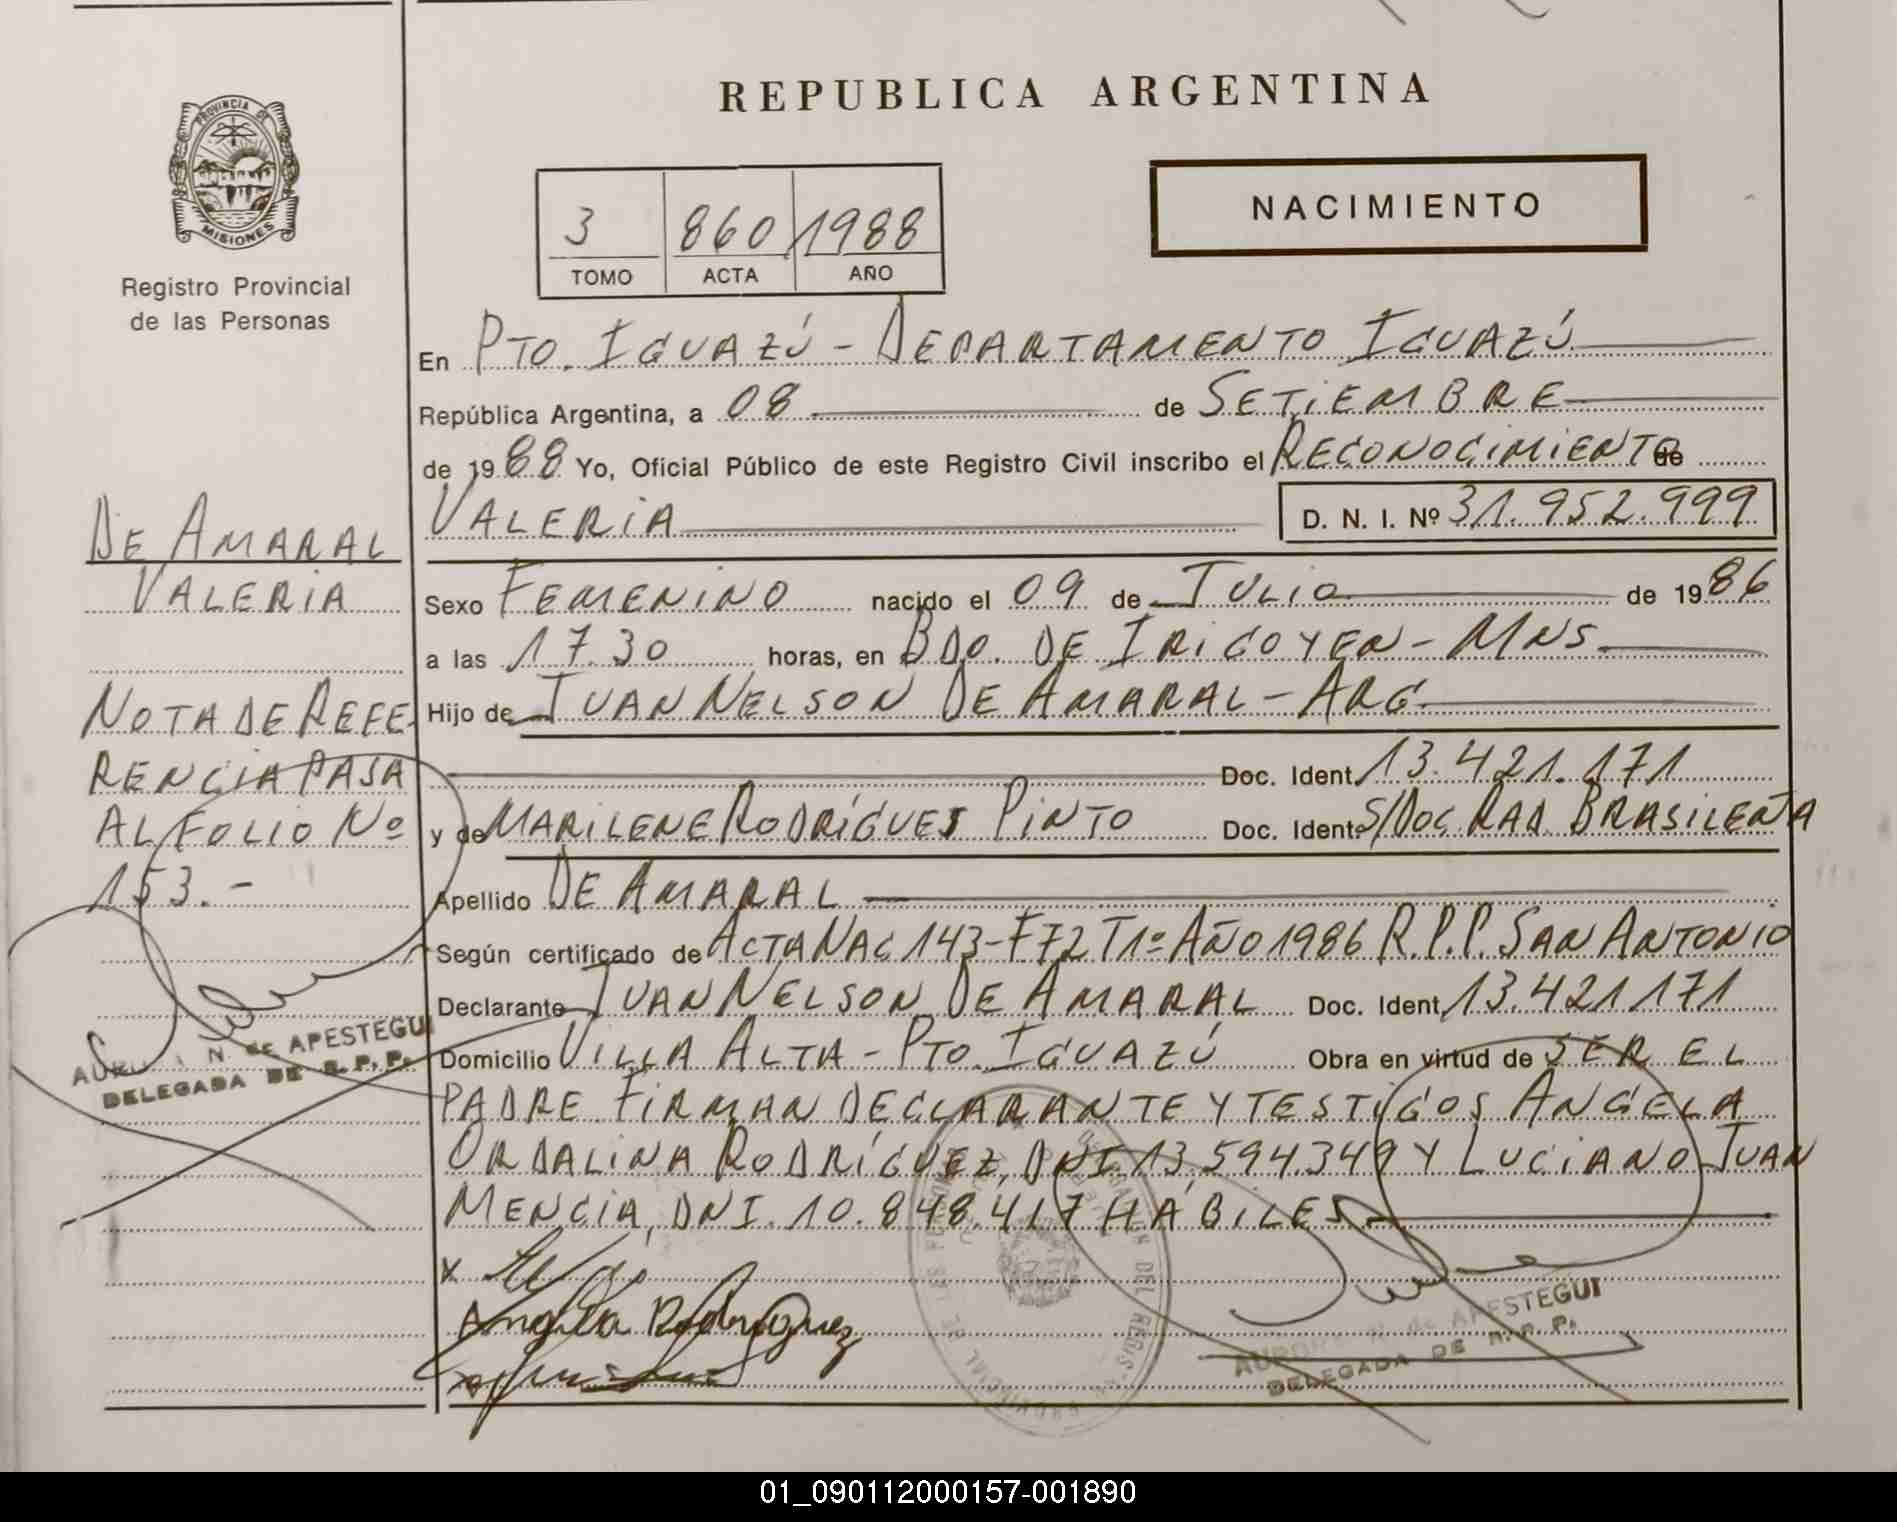 REPUBLICA ARGENTINA
PROVINCIA DE
MISIONES
Registro Provincial
de las Personas
3 860 1988
TOMO ACTA AÑO
NACIMIENTO
En PTO. IGUAZÚ - DEPARTAMENTO IGUAZÚ
República Argentina, a 08 de SETIEMBRE
de 1988 Yo, Oficial Público de este Registro Civil inscribo el RECONOCIMIENTO de
VALERIA D. N. I. Nº 31.952.999
Sexo FEMENINO nacido el 09 de JULIO de 1986
a las 17.30 horas, en BDO. DE IRIGOYEN - MNS
Hijo de JUAN NELSON DE AMARAL - ARG
Doc. Ident. 13.421.171
y de MARILENE RODRÍGUES PINTO Doc. Ident. S/DOC RAD. BRASILEÑA
Apellido DE AMARAL
Según certificado de ACTA NAC 143-F72 T1º AÑO 1986 R.P.P. SAN ANTONIO
Declarante JUAN NELSON DE AMARAL Doc. Ident. 13.421.171
Domicilio VILLA ALTA - PTO. IGUAZÚ Obra en virtud de SER EL
PADRE FIRMAN DECLARANTE Y TESTIGOS ANGELA
ORDALINA RODRÍGUEZ, DNI. 13.594.349 Y LUCIANO JUAN
MENCIA, DNI. 10.848.417 HÁBILES.
Angela Rodriguez
N. de APESTEGUI
DELEGADA DE R. P. P.
DE AMARAL
VALERIA
NOTA DE REFE-
RENCIA PASA
AL FOLIO Nº
153.-
N. de APESTEGUI
DELEGADA DE R. P. P.
01_090112000157-001890